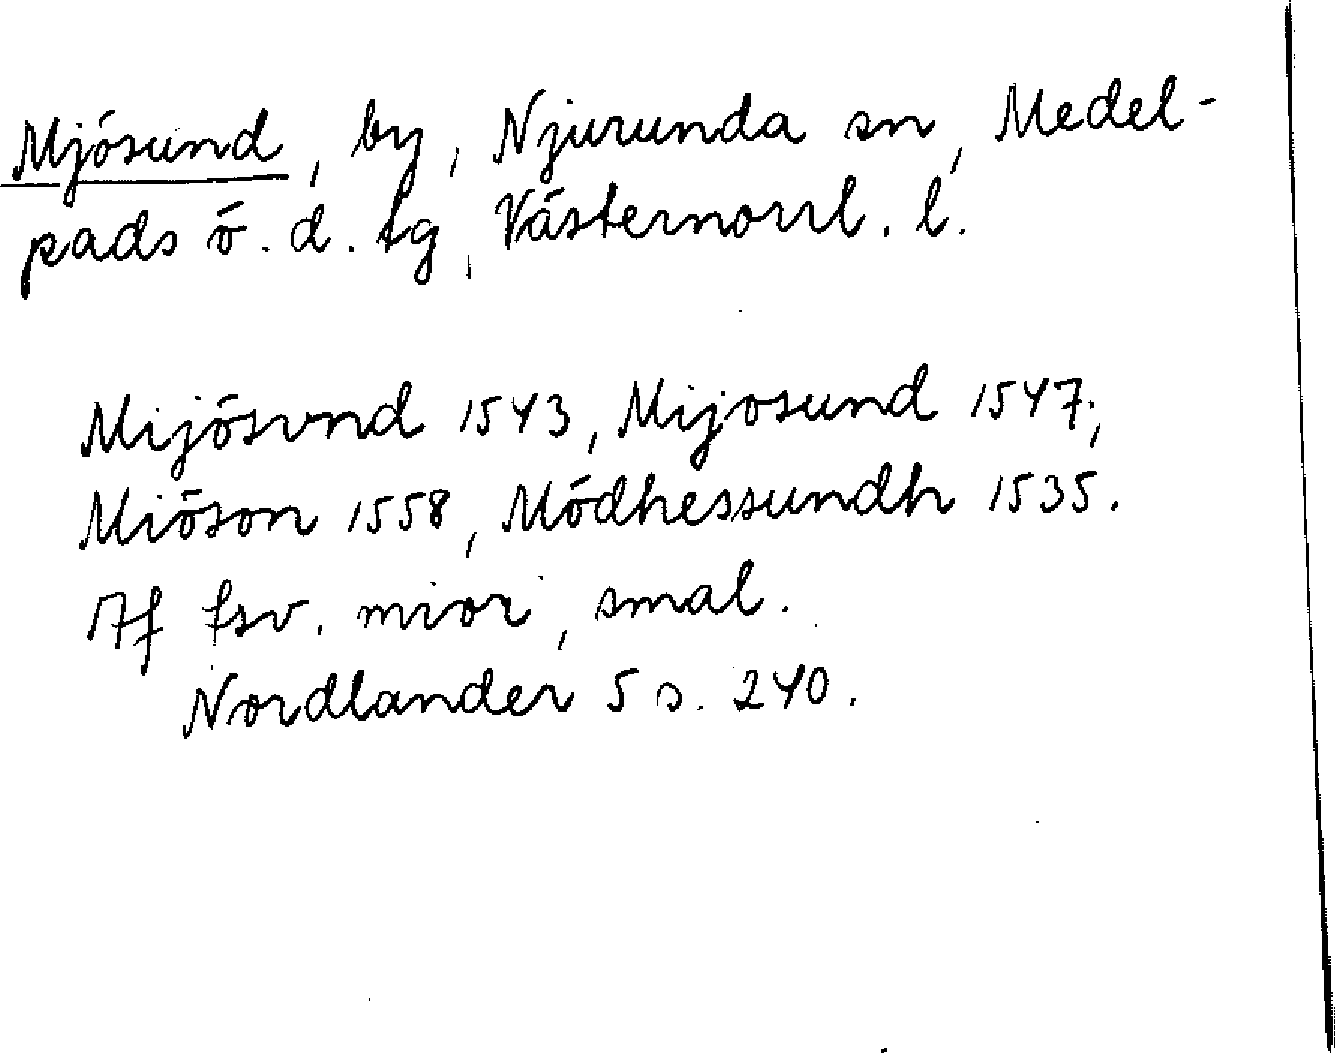 Mjösund, by, Njurunda sn, Medel-
pads ö. d. tg, Västernorrl. l.
Mijösvnd 1543, Mijosund 1547,
Miöson 1558, Mödhessundh 1535.
Af fsv. mior, smal.
Nordlander 5 s. 240.